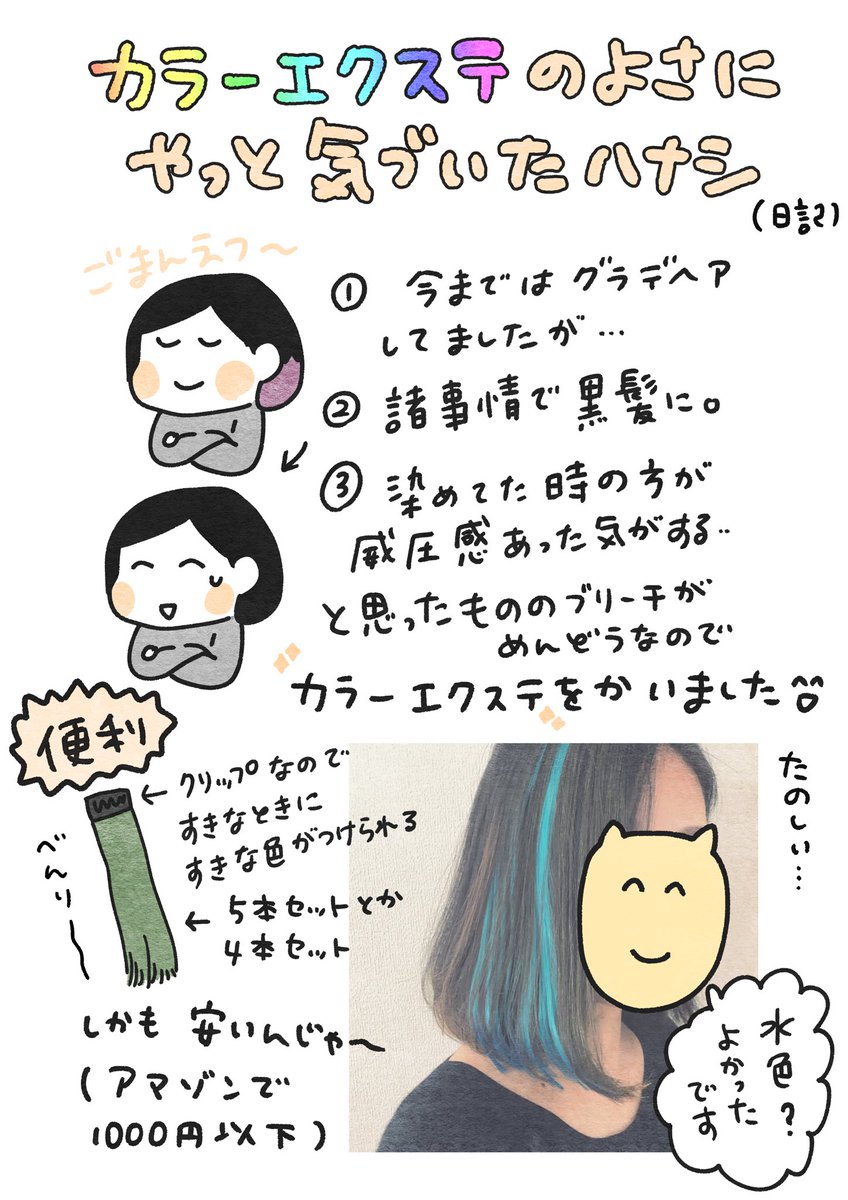 カラーエクステのよさに
やっと気づいたハナシ
(日記)
ごまんえつ〜
① 今まではグラデヘア
してましたが…
② 諸事情で黒髪に。
③ 染めてた時の方が
威圧感あった気がする..
と思ったもののブリーチが
めんどうなので
カラーエクステをかいました
便利
← クリップなので
すきなときに
すきな色がつけられる
べんりー
← 5本セットとか
4本セット
しかも 安いんじゃ〜
(アマゾンで
1000円以下)
たのしい…
水色?
よかった
です